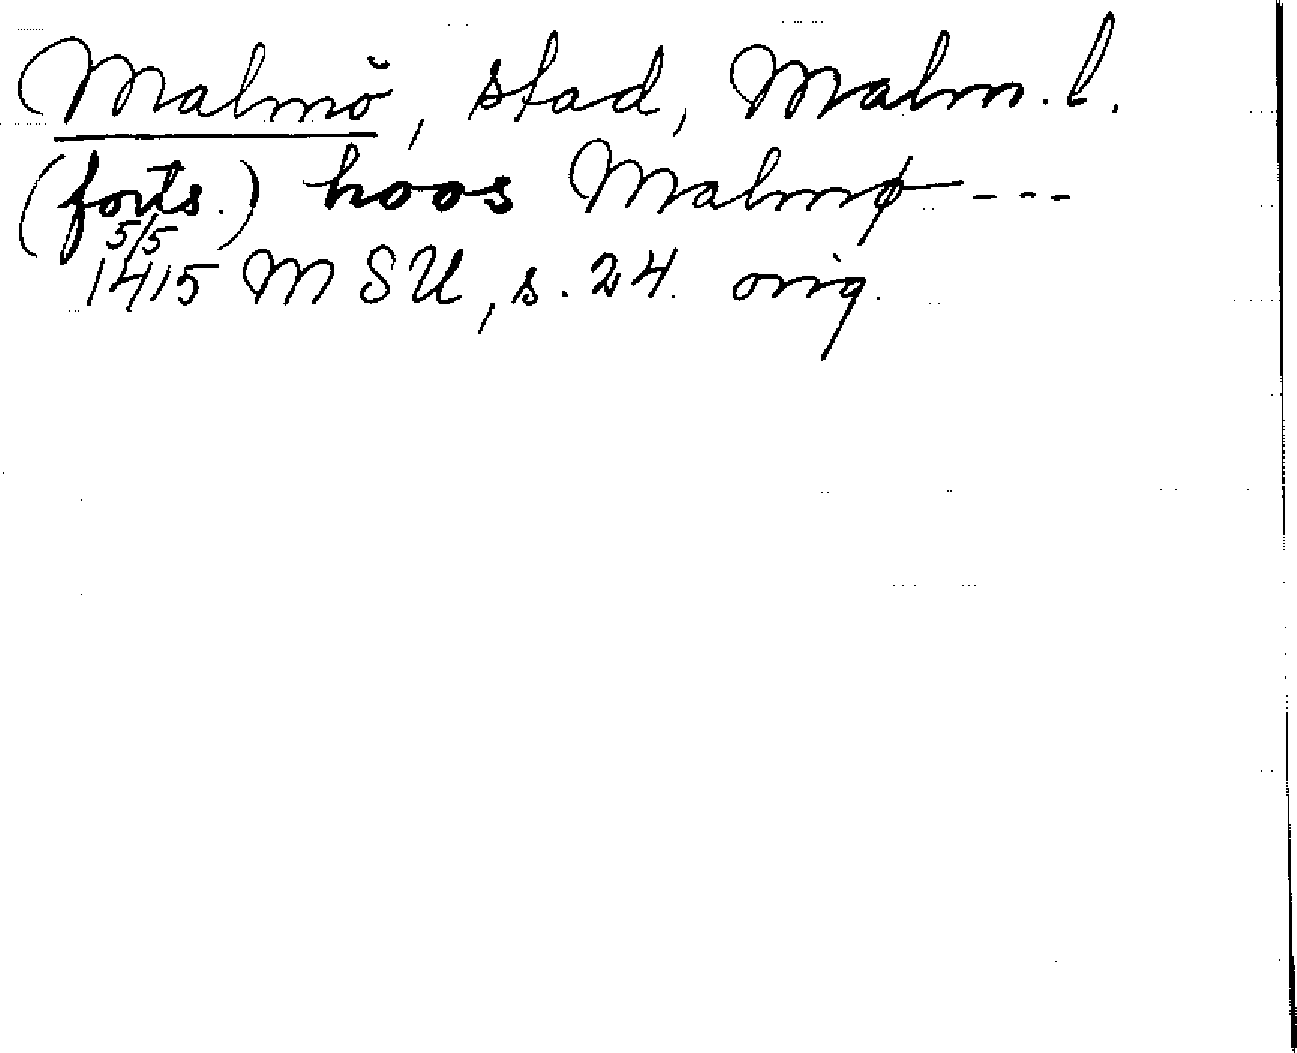 Malmö, stad, Malm. l.
(forts.) hoos Malmø ---
5/5
1415 MSU, s. 24. orig.